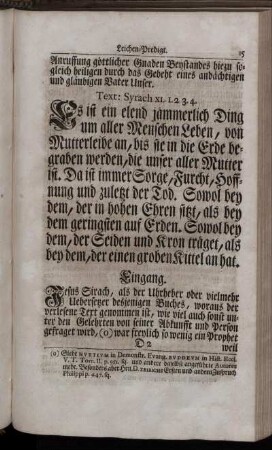 Leichen/Predigt. 15
Anruffung göttlicher Gnaden Beystandes hiezu so-
gleich heiligen durch das Gebeht eines andächtigen
und gläubigen Vater Unser.
Text: Syrach XL. 1. 2. 3. 4.
Es ist ein elend jämmerlich Ding
um aller Menschen Leben, von
Mutterleibe an, bis sie in die Erde be-
graben werden, die unser aller Mutter
ist. Da ist immer Sorge, Furcht, Hoff-
nung und zuletzt der Tod. Sowol bey
dem, der in hohen Ehren sitzt, als bey
dem geringsten auf Erden. Sowol bey
dem, der Seiden und Kron träget, als
bey dem, der einen groben Kittel an hat.
Eingang.
Jesus Sirach, als der Uhrheber oder vielmehr
Uebersetzer desjenigen Buches, woraus der
verlesene Text genommen ist, wie viel auch sonst un-
ter den Gelehrten von seiner Abkunfft und Person
gefraget wird, (a) war freylich so wenig ein Prophet
D 2 weil
(a) Siehe HVETIVM in Demonstr. Evang. BVDDEVM in Hist. Eccl.
V. T. Tom. II. p. sq. und andere daselbst angeführte Autores
mehr. Besonders aber Hrn. D. Ersten und andern Zuspruch
Philipp. p. 447. sq.